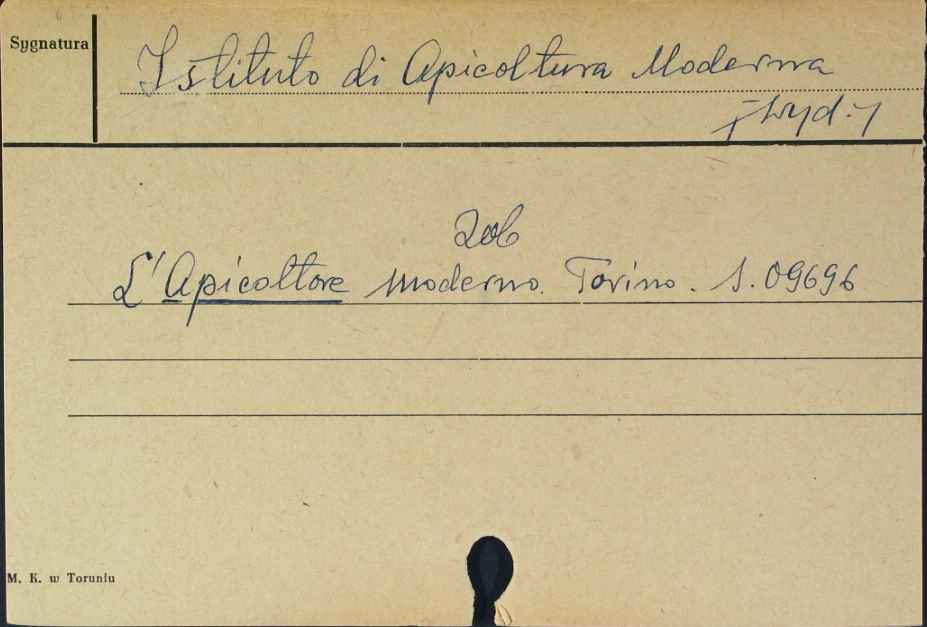 Sygnatura
Istituto di Apicoltura Moderna
[wyd.]
Zob
L'Apicoltore Moderno. Torino. S. 09696
M. K. w Toruniu